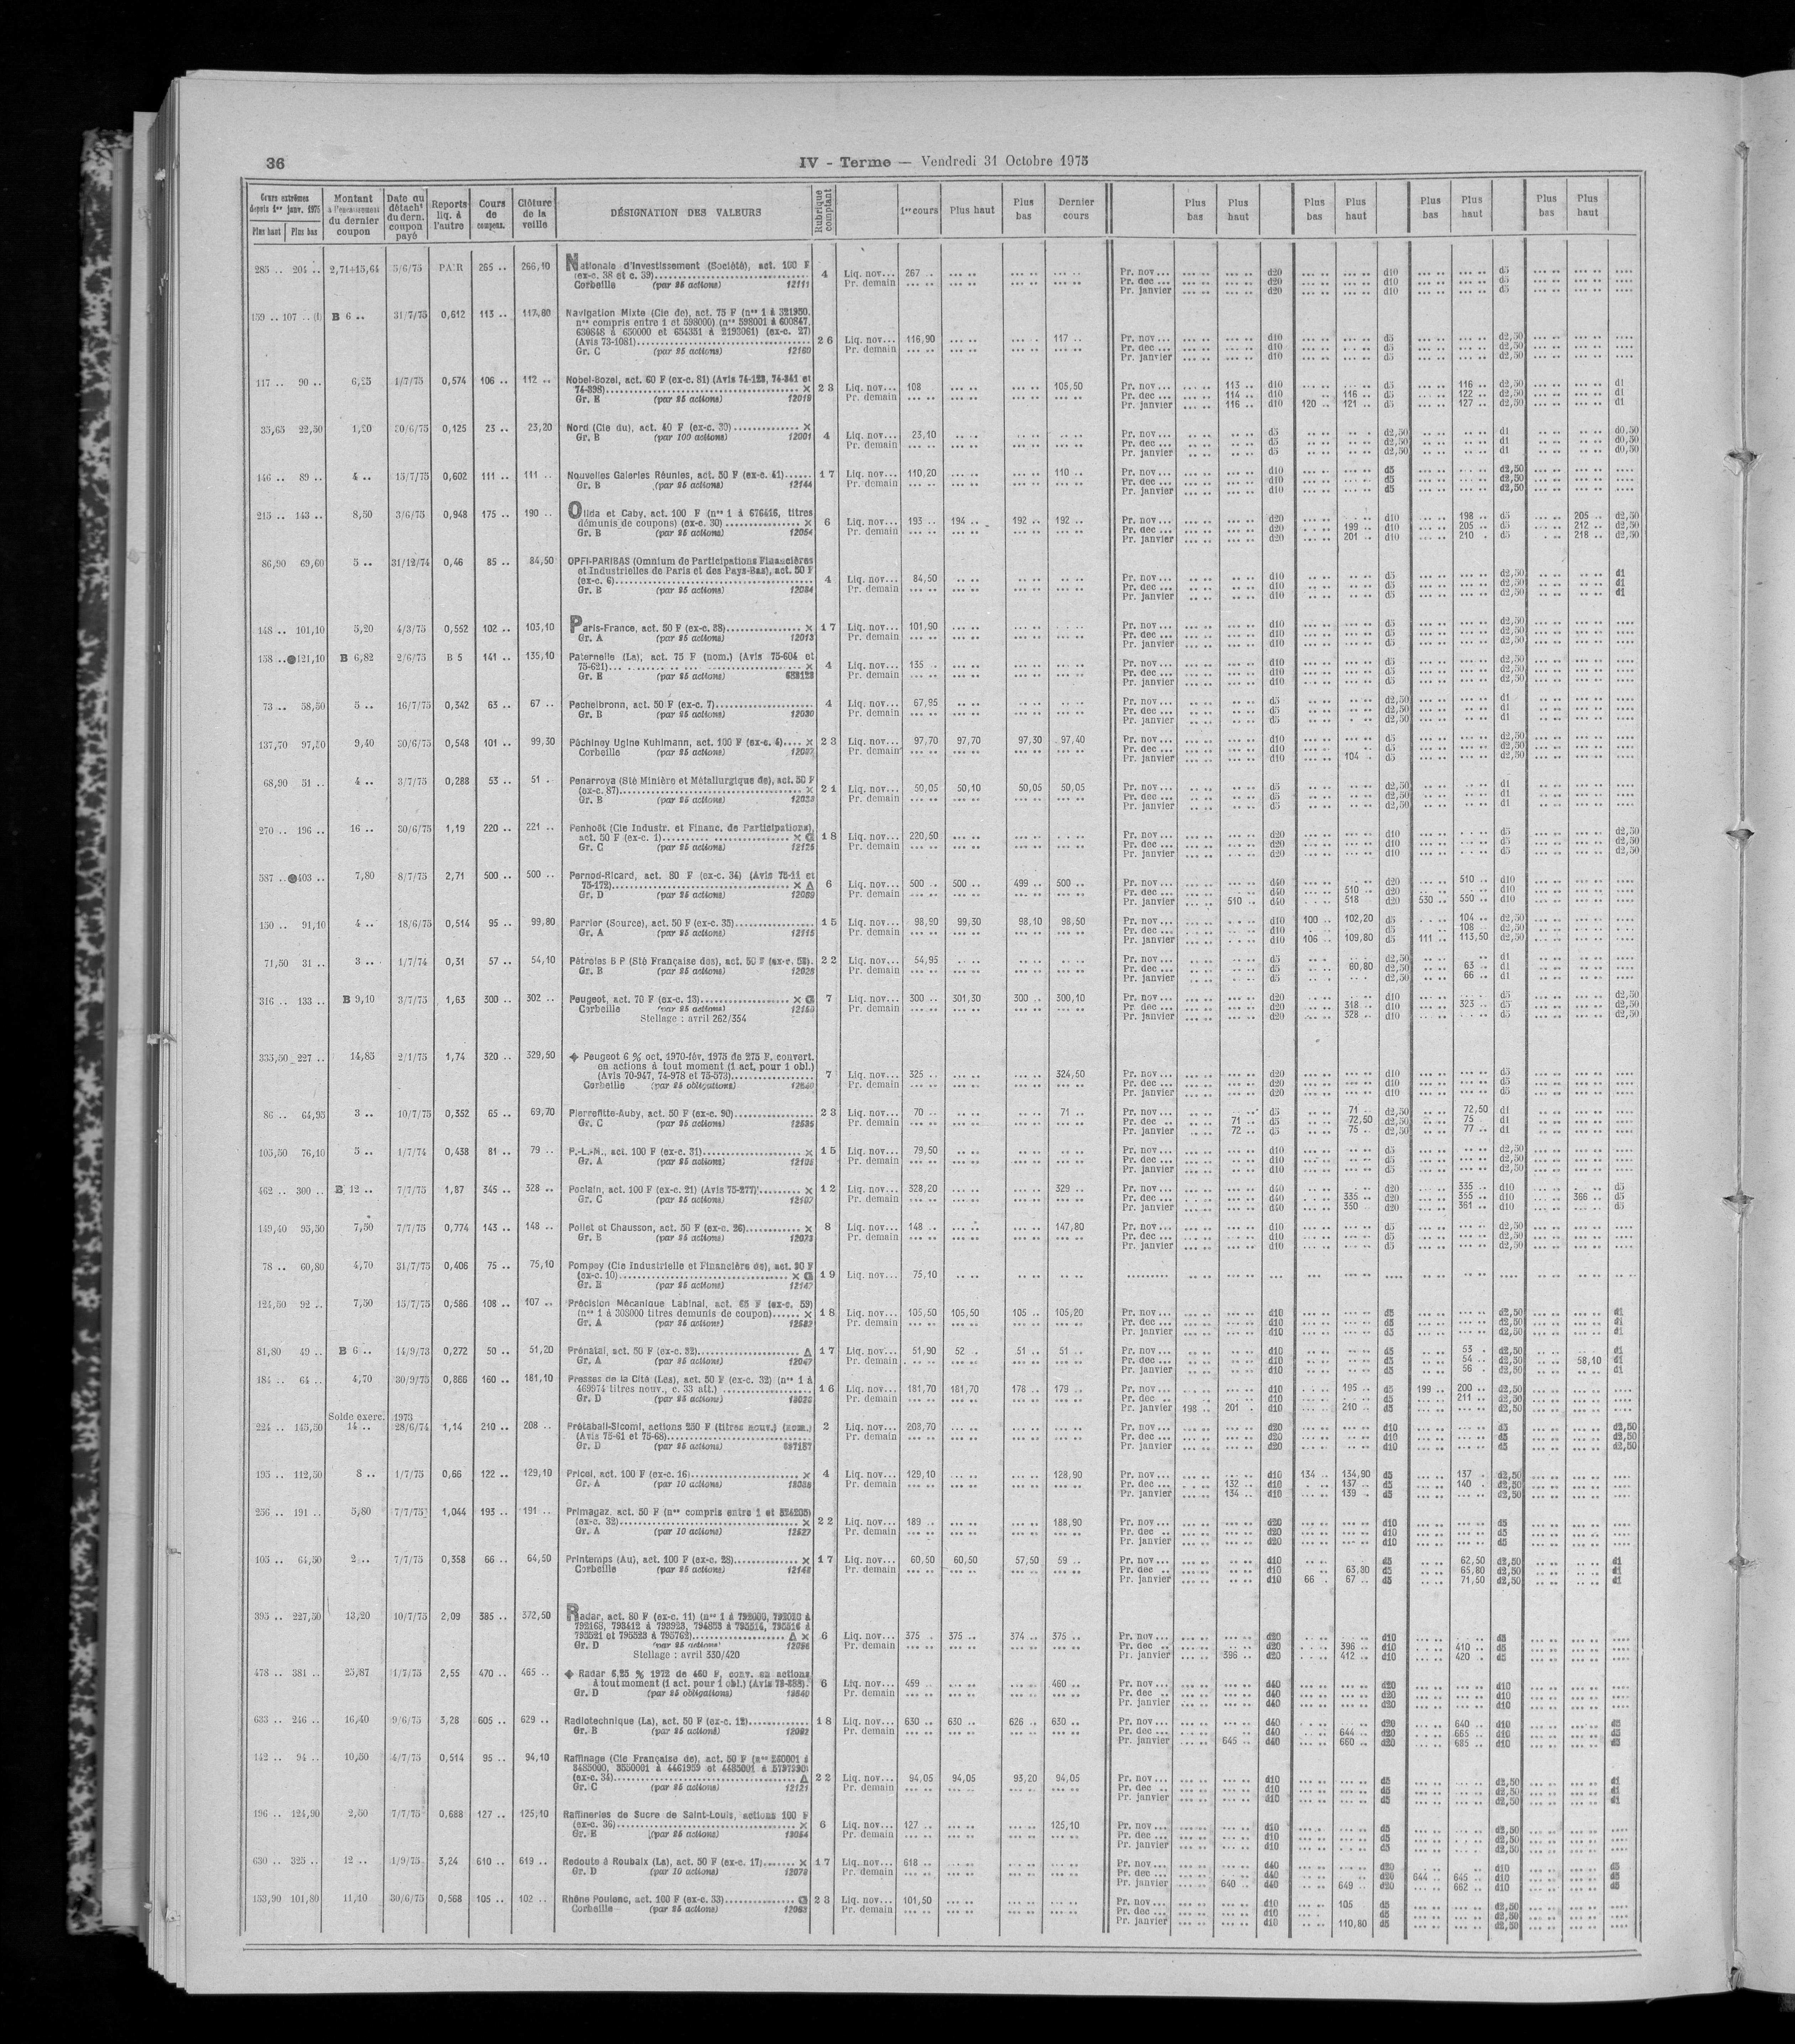 36
IV - Terme — Vendredi 31 Octobre 1975
Cours extrêmes depuis 1er janv. 1975 Plus haut Plus bas
Montant à l'encaissement du dernier coupon
Date du détacht du dern. coupon payé
Reports liq. à l'autre
Cours de compens.
Clôture de la veille
DÉSIGNATION DES VALEURS
Rubrique comptant
1er cours Plus haut Plus bas Dernier cours
Plus bas Plus haut Plus bas Plus haut Plus bas Plus haut Plus bas Plus haut
285 .. 204 .. 2,71+13,64 5/6/75 PAIR 265 .. 266,10 Nationale d'Investissement (Société), act. 100 F
(ex-c. 38 et c. 39) 4 Liq. nov... 267 .. Pr. nov ... d20 d10 d5
Corbeille (par 25 actions) 12111 Pr. demain Pr. dec ... d20 d10 d5
Pr. janvier d20 d10 d5
159 .. 107 .. (1) B 6 .. 31/7/75 0,612 113 .. 117,80 Navigation Mixte (Cie de), act. 75 F (nos 1 à 321950,
nos compris entre 1 et 598000) (nos 598001 à 600847,
630848 à 650000 et 654351 à 2193061) (ex-c. 27)
(Avis 73-1081) 26 Liq. nov... 116,90 117 .. Pr. nov ... d10 d5 d2,50
Gr. C (par 25 actions) 12160 Pr. demain Pr. dec ... d10 d5 d2,50
Pr. janvier d10 d5 d2,50
117 .. 90 .. 6,25 1/7/75 0,574 106 .. 112 .. Nobel-Bozel, act. 60 F (ex-c. 81) (Avis 74-123, 74-341 et
74-398) × 23 Liq. nov... 108 105,50 Pr. nov ... 113 .. d10 d5 116 .. d2,50 d1
Gr. B (par 25 actions) 12019 Pr. demain Pr. dec ... 114 .. d10 116 .. d5 122 .. d2,50 d1
Pr. janvier 116 .. d10 120 .. 121 .. d5 127 .. d2,50 d1
35,65 22,50 1,20 30/6/75 0,125 23 .. 23,20 Nord (Cie du), act. 40 F (ex-c. 30) × 4 Liq. nov... 23,10 Pr. nov ... d5 d2,50 d1 d0,50
Gr. B (par 100 actions) 12001 Pr. demain Pr. dec ... d5 d2,50 d1 d0,50
Pr. janvier d5 d2,50 d1 d0,50
146 .. 89 .. 4 .. 15/7/75 0,602 111 .. 111 .. Nouvelles Galeries Réunies, act. 50 F (ex-c. 41) 17 Liq. nov... 110,20 110 .. Pr. nov ... d10 d5 d2,50
Gr. B (par 25 actions) 12144 Pr. demain Pr. dec ... d10 d5 d2,50
Pr. janvier d10 d5 d2,50
215 .. 143 .. 8,50 3/6/75 0,948 175 .. 190 .. Olida et Caby, act. 100 F (nos 1 à 676416, titres
démunis de coupons) (ex-c. 30) × 6 Liq. nov... 193 .. 194 .. 192 .. 192 .. Pr. nov ... d20 d10 198 .. d5 205 .. d2,50
Gr. B (par 25 actions) 12054 Pr. demain Pr. dec ... d20 199 .. d10 205 .. d5 212 .. d2,50
Pr. janvier d20 201 .. d10 210 . d5 218 .. d2,50
86,90 69,60 5 .. 31/12/74 0,46 85 .. 84,50 OPFI-PARIBAS (Omnium de Participations Financières
et Industrielles de Paris et des Pays-Bas), act. 50 F
(ex-c. 6) 4 Liq. nov... 84,50 Pr. nov ... d10 d5 d2,50 d1
Gr. B (par 25 actions) 12084 Pr. demain Pr. dec ... d10 d5 d2,50 d1
Pr. janvier d10 d5 d2,50 d1
148 .. 101,10 5,20 4/3/75 0,552 102 .. 103,10 Paris-France, act. 50 F (ex-c. 38) × 17 Liq. nov... 101,90 Pr. nov ... d10 d5 d2,50
Gr. A (par 25 actions) 12013 Pr. demain Pr. dec ... d10 d5 d2,50
Pr. janvier d10 d5 d2,50
158 .. ●121,10 B 6,82 2/6/75 B 5 141 .. 135,10 Paternelle (La), act. 75 F (nom.) (Avis 75-604 et
75-621) × 4 Liq. nov... 135 .. Pr. nov ... d10 d5 d2,50
Gr. B (par 25 actions) Pr. demain Pr. dec ... d10 d5 d2,50
Pr. janvier d10 d5 d2,50
73 .. 58,50 5 .. 16/7/75 0,342 63 .. 67 .. Pechelbronn, act. 50 F (ex-c. 7) 4 Liq. nov... 67,95 Pr. nov ... d5 d2,50 d1
Gr. B (par 25 actions) 12030 Pr. demain Pr. dec ... d5 d2,50 d1
Pr. janvier d5 d2,50 d1
137,70 97,50 9,40 30/6/75 0,548 101 .. 99,30 Péchiney Ugine Kuhlmann, act. 100 F (ex-c. 4) × 23 Liq. nov... 97,70 97,70 97,30 97,40 Pr. nov ... d10 d5 d2,50
Corbeille (par 25 actions) 12007 Pr. demain Pr. dec ... d10 d5 d2,50
Pr. janvier d10 104 .. d5 d2,50
68,90 51 .. 4 .. 3/7/75 0,288 53 .. 51 .. Penarroya (Sté Minière et Métallurgique de), act. 50 F
(ex-c. 87) × 21 Liq. nov... 50,05 50,10 50,05 50,05 Pr. nov ... d5 d2,50 d1
Gr. B (par 25 actions) Pr. demain Pr. dec ... d5 d2,50 d1
Pr. janvier d5 d2,50 d1
270 .. 196 .. 16 .. 30/6/75 1,19 220 .. 221 .. Penhoët (Cie Industr. et Financ. de Participations),
act. 50 F (ex-c. 1) × G 18 Liq. nov... 220,50 Pr. nov ... d20 d10 d5 d2,50
Gr. C (par 25 actions) 12125 Pr. demain Pr. dec ... d20 d10 d5 d2,50
Pr. janvier d20 d10 d5 d2,50
587 .. ●403 .. 7,80 8/7/75 2,71 500 .. 500 .. Pernod-Ricard, act. 80 F (ex-c. 34) (Avis 75-11 et
75-172) × Δ 6 Liq. nov... 500 .. 500 .. 499 .. 500 .. Pr. nov ... d40 d20 510 .. d10
Gr. D (par 25 actions) 12089 Pr. demain Pr. dec ... d40 510 .. d20 d10
Pr. janvier 510 .. d40 518 d20 530 .. 550 .. d10
150 .. 91,10 4 .. 18/6/75 0,514 95 .. 99,80 Perrier (Source), act. 50 F (ex-c. 35) 15 Liq. nov... 98,90 99,30 98,10 98,50 Pr. nov ... d10 100 .. 102,20 d5 104 .. d2,50
Gr. A (par 25 actions) 12115 Pr. demain Pr. dec ... d10 d5 108 .. d2,50
Pr. janvier d10 106 .. 109,80 d5 111 .. 113,50 d2,50
71,50 31 .. 3 .. 1/7/74 0,31 57 .. 54,10 Pétroles B P (Sté Française des), act. 50 F (ex-c. 53) 22 Liq. nov... 54,95 Pr. nov ... d5 d2,50 d1
Gr. B (par 25 actions) 12028 Pr. demain Pr. dec ... d5 60,80 d2,50 63 .. d1
Pr. janvier d5 d2,50 66 .. d1
316 .. 133 .. B 9,10 3/7/75 1,63 300 .. 302 .. Peugeot, act. 70 F (ex-c. 13) × G 7 Liq. nov... 300 .. 301,30 300 .. 300,10 Pr. nov ... d20 d10 d5 d2,50
Corbeille (par 25 actions) Pr. demain Pr. dec ... d20 318 .. d10 323 .. d5 d2,50
Stellage : avril 262/354 Pr. janvier d20 328 .. d10 d5 d2,50
335,50 227 .. 14,85 2/1/75 1,74 320 .. 329,50 ◆ Peugeot 6 % oct. 1970-fév. 1975 de 275 F. convert.
en actions à tout moment (1 act. pour 1 obl.)
(Avis 70-947, 74-978 et 75-573) 7 Liq. nov... 325 .. 324,50 Pr. nov ... d20 d10 d5
Corbeille (par 25 obligations) Pr. demain Pr. dec ... d20 d10 d5
Pr. janvier d20 d10 d5
86 .. 64,95 3 .. 10/7/75 0,352 65 .. 69,70 Pierrefitte-Auby, act. 50 F (ex-c. 90) 23 Liq. nov... 70 .. 71 .. Pr. nov ... d5 71 .. d2,50 72,50 d1
Gr. C (par 25 actions) 12535 Pr. demain Pr. dec .. 71 .. d5 72,50 d2,50 75 d1
Pr. janvier 72 .. d5 75 .. d2,50 77 .. d1
105,50 76,10 5 .. 1/7/74 0,438 81 .. 79 .. P.-L.-M., act. 100 F (ex-c. 31) × 15 Liq. nov... 79,50 Pr. nov ... d10 d5 d2,50
Gr. A (par 25 actions) Pr. demain Pr. dec ... d10 d5 d2,50
Pr. janvier d10 d5 d2,50
462 .. 300 .. B 12 .. 7/7/75 1,87 345 .. 328 .. Poclain, act. 100 F (ex-c. 21) (Avis 75-277) × 12 Liq. nov... 328,20 329 .. Pr. nov ... d40 d20 335 .. d10 d5
Gr. C (par 25 actions) 12107 Pr. demain Pr. dec ... d40 335 .. d20 355 .. d10 366 .. d5
Pr. janvier d40 350 d20 361 .. d10 d5
149,40 95,50 7,50 7/7/75 0,774 143 .. 148 .. Poliet et Chausson, act. 50 F (ex-c. 26) × 8 Liq. nov... 148 .. 147,80 Pr. nov ... d10 d5 d2,50
Gr. B (par 25 actions) 12073 Pr. demain Pr. dec ... d10 d5 d2,50
Pr. janvier d10 d5 d2,50
78 .. 60,80 4,70 31/7/75 0,406 75 .. 75,10 Pompey (Cie Industrielle et Financière de), act. 90 F
(ex-c. 10) × G 19 Liq. nov... 75,10
Gr. B (par 25 actions) 12147
124,50 92 .. 7,50 15/7/75 0,586 108 .. 107 .. Précision Mécanique Labinal, act. 65 F (ex-c. 59)
(nos 1 à 308000 titres demunis de coupon) × 18 Liq. nov... 105,50 105,50 105 .. 105,20 Pr. nov ... d10 d5 d2,50 d1
Gr. A (par 25 actions) Pr. demain Pr. dec ... d10 d5 d2,50 d1
Pr. janvier d10 d5 d2,50 d1
81,80 49 .. B 6 .. 14/9/73 0,272 50 .. 51,20 Prénatal, act. 50 F (ex-c. 32) Δ 17 Liq. nov... 51,90 52 . 51 .. 51 .. Pr. nov ... d10 d5 53 . d2,50 d1
Gr. A (par 25 actions) 12047 Pr. demain Pr. dec ... d10 d5 54 .. d2,50 58,10 d1
Pr. janvier d10 d5 56 . d2,50 d1
184 .. 64 .. 4,70 30/9/75 0,866 160 .. 181,10 Presses de la Cité (Les), act. 50 F (ex-c. 32) (nos 1 à
469974 titres nouv., c. 33 att.) 16 Liq. nov... 181,70 181,70 178 .. 179 .. Pr. nov ... d10 195 .. d5 199 .. 200 .. d2,50
Gr. D (par 25 actions) Pr. demain Pr. dec .. d10 d5 211 .. d2,50
Pr. janvier 198 .. 201 . d10 210 .. d5 d2,50
Solde exerc. 1973
224 .. 145,50 14 .. 28/6/74 1,14 210 .. 208 .. Prétabail-Sicomi, actions 250 F (titres nouv.) (nom.) 2 Liq. nov... 208,70 Pr. nov ... d20 d10 d5 d2,50
(Avis 75-61 et 75-68) Pr. demain Pr. dec ... d20 d10 d5 d2,50
Gr. D (par 25 actions) 697157 Pr. janvier d20 d10 d5 d2,50
195 .. 112,50 8 .. 1/7/75 0,66 122 .. 129,10 Pricel, act. 100 F (ex-c. 16) × 4 Liq. nov... 129,10 128,90 Pr. nov ... d10 134 .. 134,90 d5 137 . d2,50
Gr. A (par 10 actions) Pr. demain Pr. dec ... 132 .. d10 137 .. d5 140 . d2,50
Pr. janvier 134 .. d10 139 . d5 d2,50
256 .. 191 .. 5,80 7/7/75 1,044 193 .. 191 .. Primagaz, act. 50 F (nos compris entre 1 et 524205)
(ex-c. 32) × 22 Liq. nov... 189 .. 188,90 Pr. nov ... d20 d10 d5
Gr. A (par 10 actions) 12527 Pr. demain Pr. dec .. d20 d10 d5
Pr. janvier d20 d10 d5
105 .. 64,50 2 .. 7/7/75 0,358 66 .. 64,50 Printemps (Au), act. 100 F (ex-c. 28) × 17 Liq. nov... 60,50 60,50 57,50 59 .. Pr. nov ... d10 d5 62,50 d2,50 d1
Corbeille (par 25 actions) 12148 Pr. demain Pr. dec .. d10 63,80 d5 65,80 d2,50 d1
Pr. janvier d10 66 . 67 .. d5 71,50 d2,50 d1
395 .. 227,50 13,20 10/7/75 2,09 385 .. 372,50 Radar, act. 80 F (ex-c. 11) (nos 1 à 792000, 792010 à
792168, 793412 à 793923, 794853 à 795514, 795516 à
795521 et 795523 à 795762) Δ × 6 Liq. nov... 375 . 375 .. 374 .. 375 .. Pr. nov ... d20 d10 d5
Gr. D (par 25 actions) Pr. demain Pr. dec .. d20 396 .. d10 410 .. d5
Stellage : avril 330/420 Pr. janvier 396 .. d20 412 .. d10 420 .. d5
478 .. 381 .. 25,87 1/7/75 2,55 470 .. 465 .. ◆ Radar 6,25 % 1972 de 460 F, conv. en actions
à tout moment (1 act. pour 1 obl.) (Avis 73-388) 6 Liq. nov... 459 .. 460 .. Pr. nov ... d40 d20 d10
Gr. D (par 25 obligations) Pr. demain Pr. dec .. d40 d20 d10
Pr. janvier d40 d20 d10
633 .. 246 .. 16,40 9/6/75 3,28 605 .. 629 .. Radiotechnique (La), act. 50 F (ex-c. 12) 18 Liq. nov... 630 .. 630 .. 626 .. 630 .. Pr. nov ... d40 d20 640 .. d10 d5
Gr. B (par 25 actions) 12092 Pr. demain Pr. dec ... d40 644 .. d20 665 .. d10 d5
Pr. janvier 645 .. d40 660 .. d20 685 .. d10 d5
142 .. 94 .. 10,50 4/7/75 0,514 95 .. 94,10 Raffinage (Cie Française de), act. 50 F (nos 250001 à
3485000, 3550001 à 4461959 et 4485001 à 5797390)
(ex-c. 34) Δ 22 Liq. nov... 94,05 94,05 93,20 94,05 Pr. nov ... d10 d5 d2,50 d1
Gr. C (par 25 actions) 12121 Pr. demain Pr. dec .. d10 d5 d2,50 d1
Pr. janvier d10 d5 d2,50 d1
196 .. 124,90 2,50 7/7/75 0,688 127 .. 125,10 Raffineries de Sucre de Saint-Louis, actions 100 F
(ex-c. 36) × 6 Liq. nov... 127 .. 125,10 Pr. nov ... d10 d5 d2,50
Gr. B (par 25 actions) Pr. demain Pr. dec ... d10 d5 d2,50
Pr. janvier d10 d5 d2,50
630 .. 325 .. 12 .. 1/9/75 3,24 610 .. 619 .. Redoute à Roubaix (La), act. 50 F (ex-c. 17) × 17 Liq. nov... 618 .. Pr. nov ... d40 d20 d10 d5
Gr. D (par 10 actions) 12078 Pr. demain Pr. dec ... d40 d20 644 .. 645 .. d10 d5
Pr. janvier 640 .. d40 649 .. d20 662 .. d10 d5
153,90 101,80 11,10 30/6/75 0,568 105 .. 102 .. Rhône Poulenc, act. 100 F (ex-c. 33) G 23 Liq. nov... 101,50 Pr. nov ... d10 105 d5 d2,50
Corbeille (par 25 actions) 12063 Pr. demain Pr. dec ... d10 d5 d2,50
Pr. janvier d10 110,80 d5 d2,50